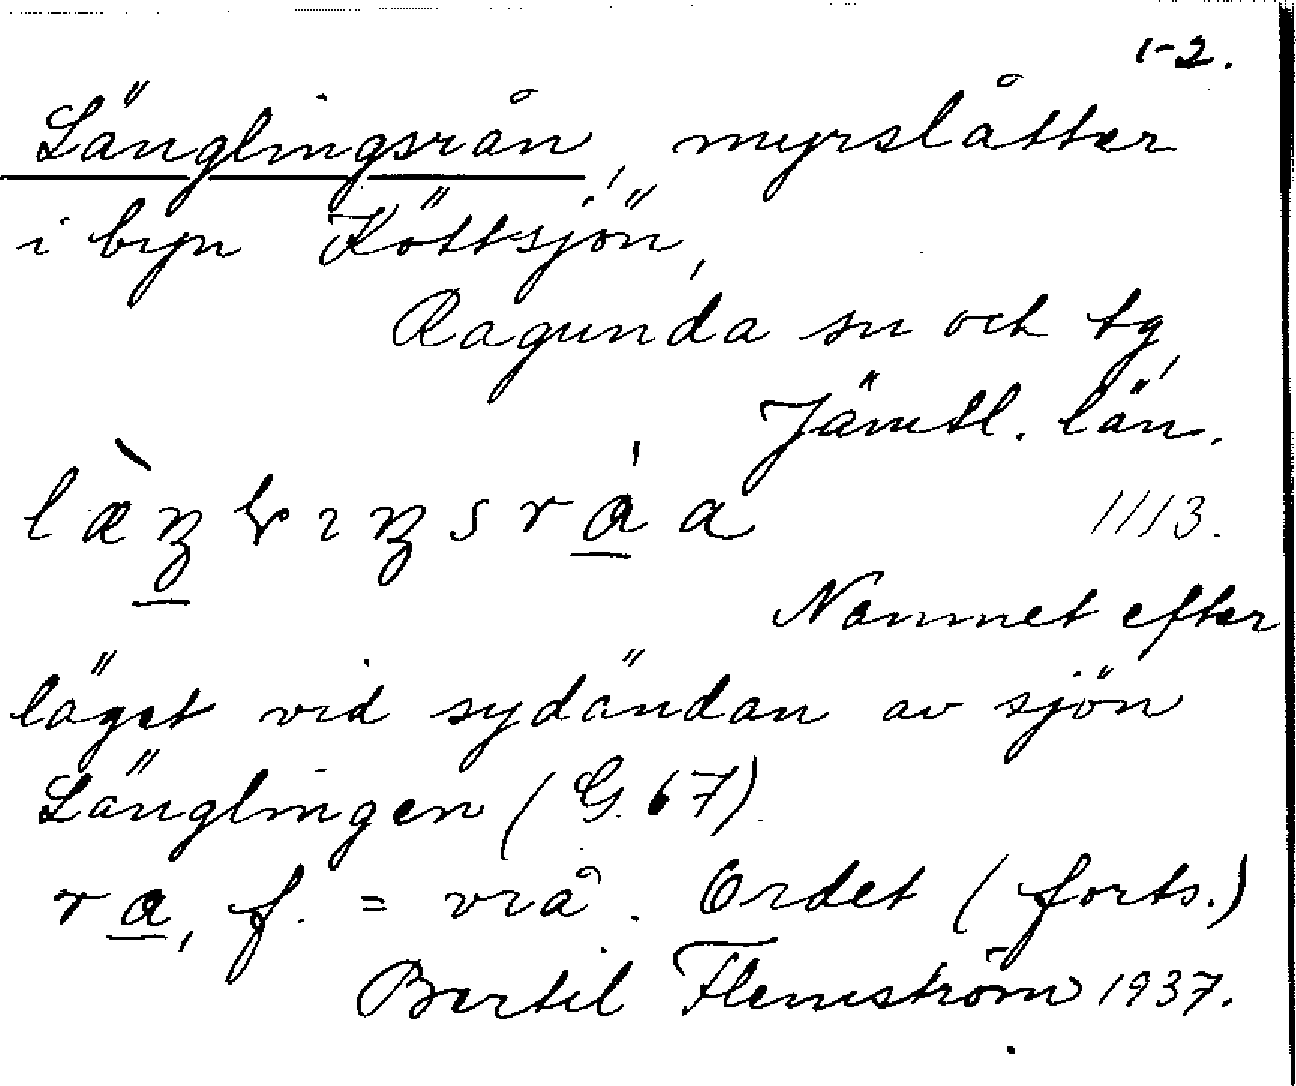 1-2.
Länglingsrån, myrslåtter
i byn Köttsjön,
Ragunda sn och tg,
Jämtl. län.
1113.
Namnet efter
läget vid sydändan av sjön
Länglingen (G. 67)
ra, f. = vrå. Ordet (forts.)
Bertil Flemström 1937.